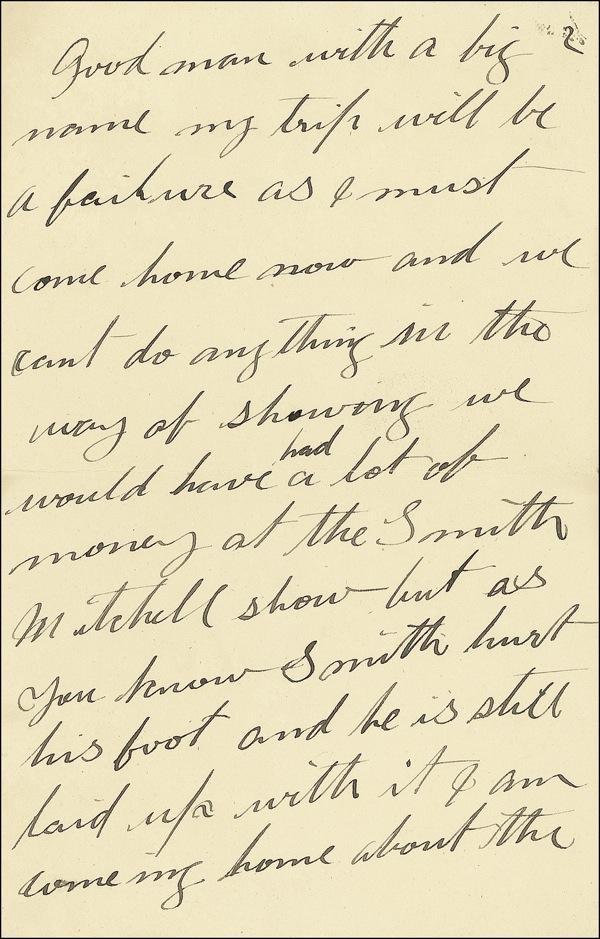 2
Good man with a big
name my trip will be
a failure as I must
come home now and we
cant do any thing in the
way of showing we
had
would have a lot of
money at the Smith
Mitchell show but as
You know Smith hurt
his foot and he is still
laid up with it I am
comeing home about the